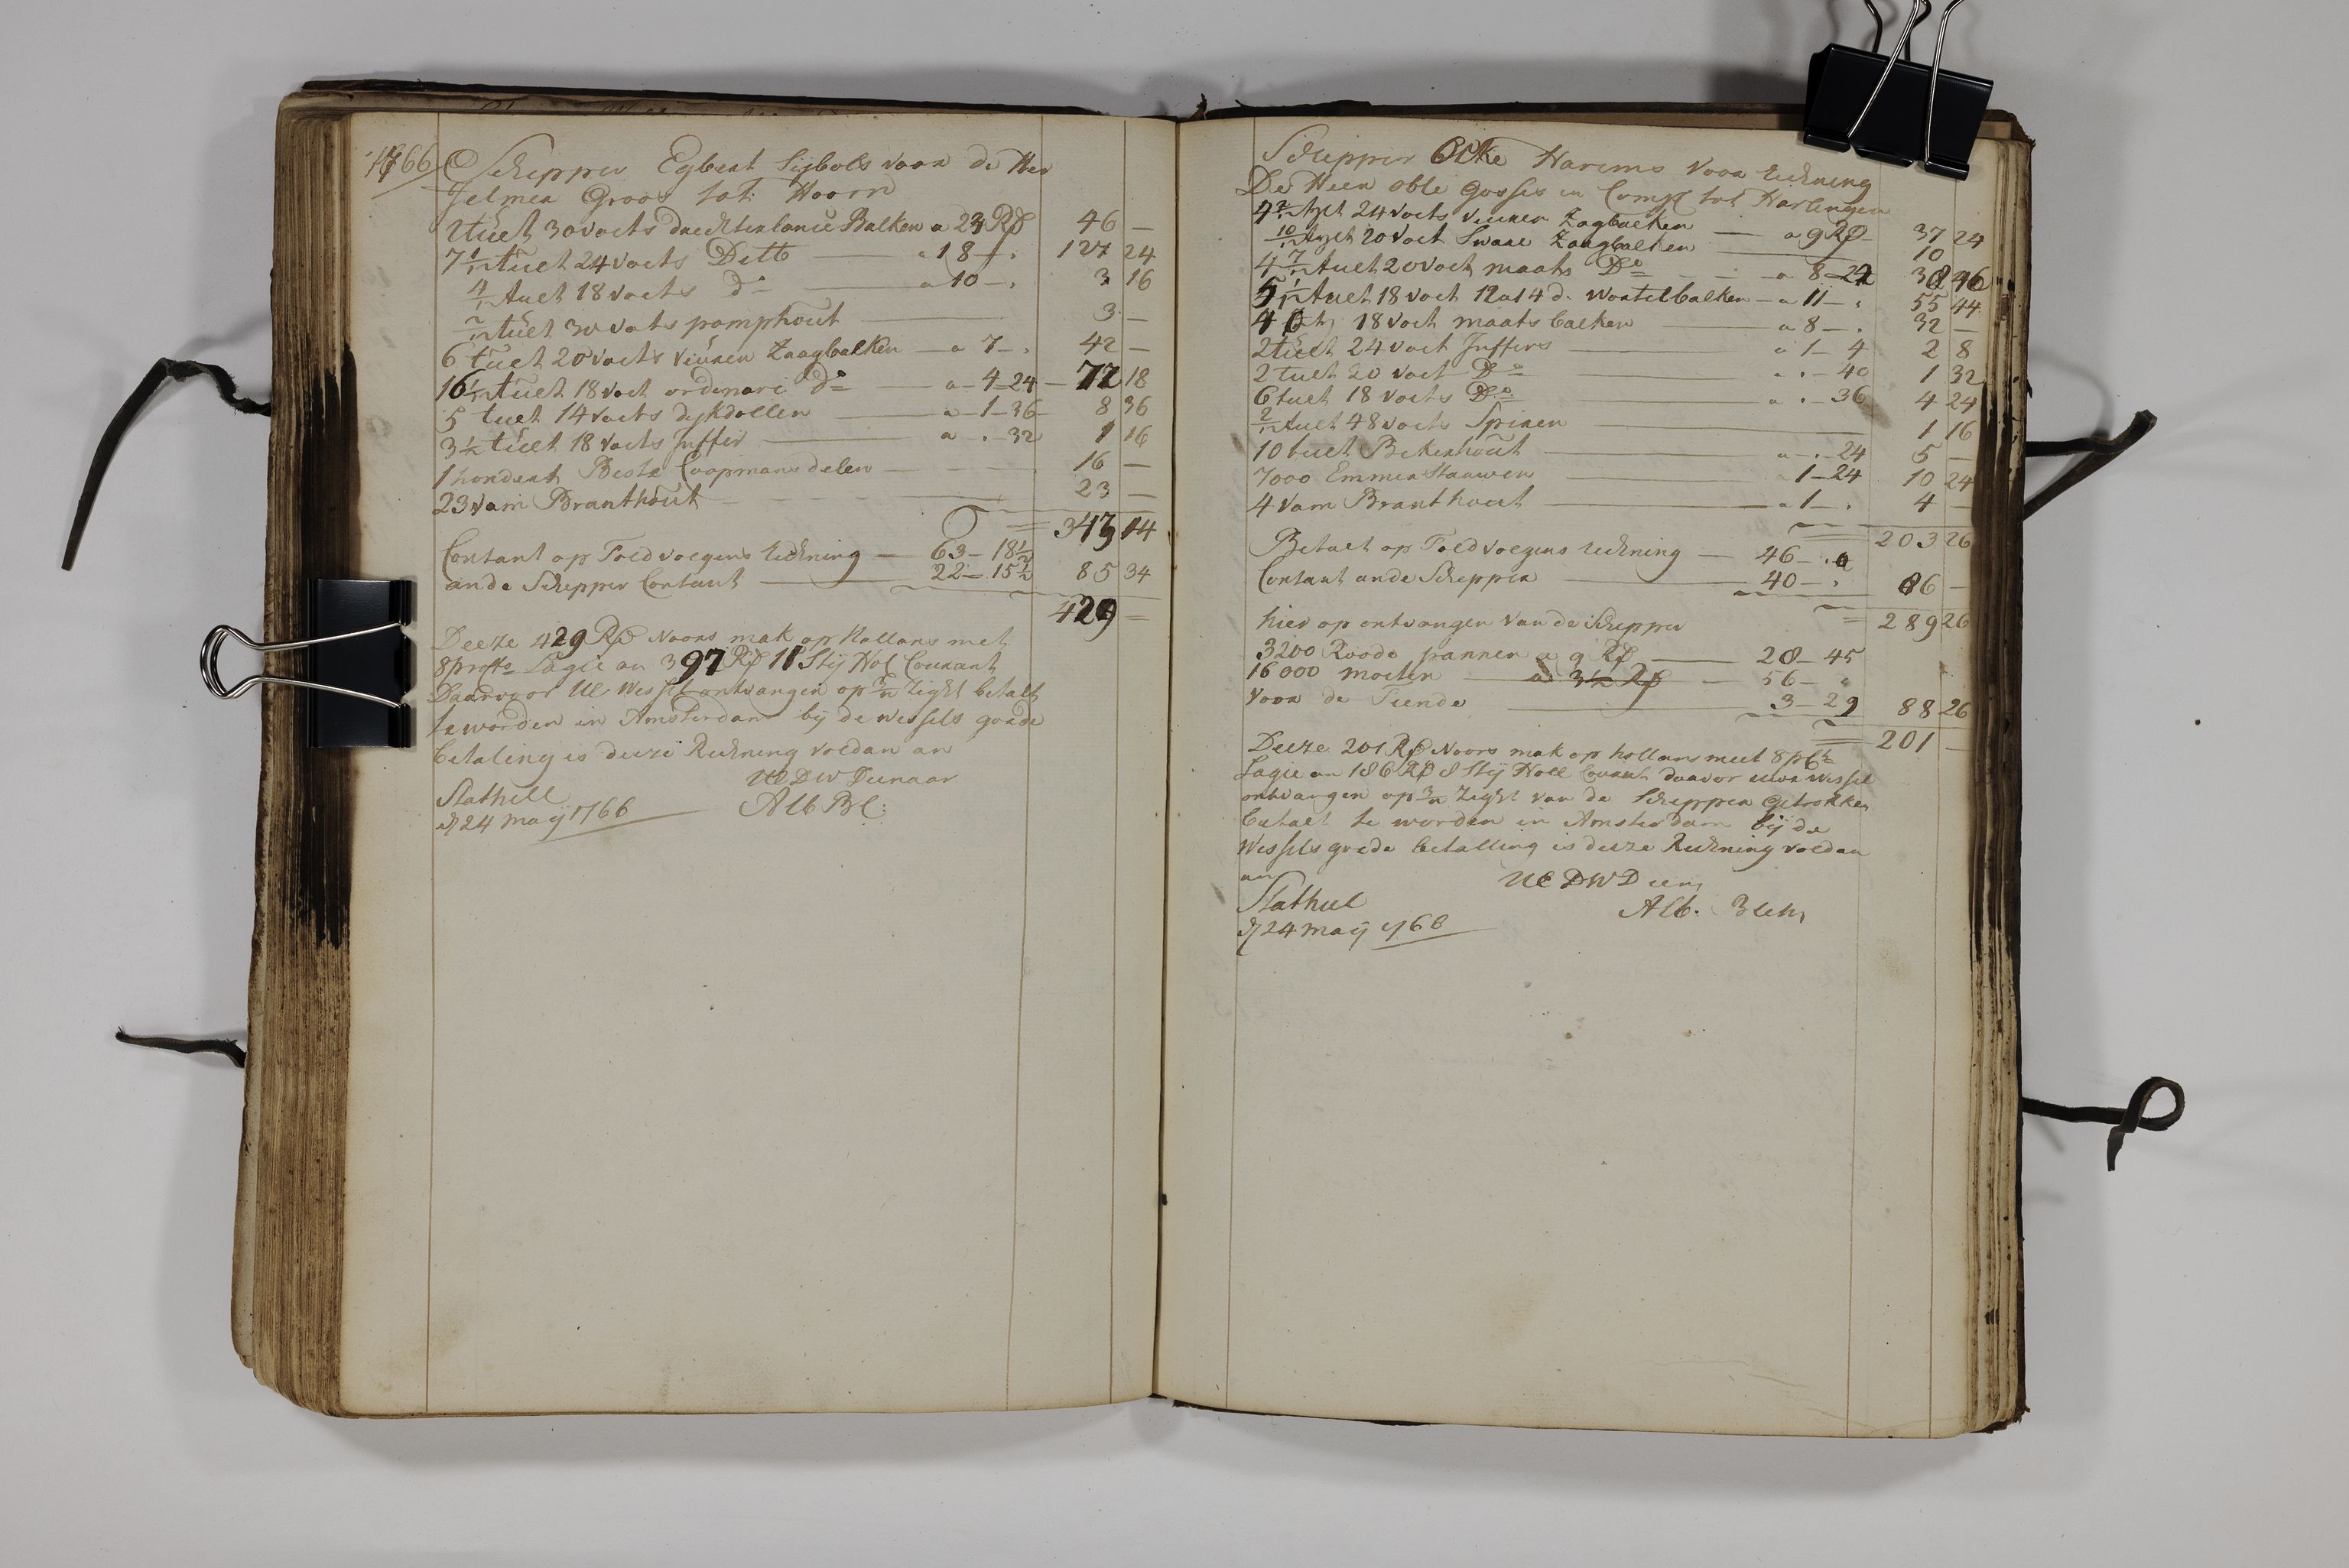 1766 Schipper Egbert Sijbols voor de Heer
Jelmer Groos tot Hoorn
2 tuelt 30 voets duechtenlanse Balken a 23 Rd 46 —
7 1/12 tuelt 24 voets Ditto — a 18 — . 127 24
4/12 tuelt 18 voets do — a 10 — . 3 16
2/12 tuelt 30 voets pomphout — 3 —
6 tuelt 20 voets vieuren Zaagbalken — a 7 — . 42 —
16 1/12 tuelt 18 voet ordenari do — a — 4 — 24 — 72 18
5 tuelt 14 voets dijkdollen — a — 1 — 36 — 8 36
3 1/2 tuelt 18 voets Juffer — a . — 32 1 16
1 hondert Beste Coopmans delen — 16 —
23 vam Branthout — 23 —
343 14
Contant op Told voegens Rekning — 63 — 18 1/2
ande Schipper Contant — 22 — 15 1/2 85 34
429 =
Deeze 429 Rd Noors mak op Hollans met
8 procto Lagie an 397 Rd 11 Stij Hol Courant
Daarvoor UE Wessel ontvangen op zight betalt
te worden in Amsterdam bij de wessels goede
betaling is deeze Rekning voldan an
UEDW Dienaar
Stathell Alb Bl:
d 24 maij 1766
Schipper Ocke Harems voor Rekning
De Heer oble Gosses en Comp tot Harlingen
4 2/12 tylt 24 voets vieuren Zagbalken — a 9 Rd — 37 24
10/12 tylt 20 voet Swaare Zaagbalken — 10
4 7/12 tuelt 20 voet maats Do — a — 8 — 22 38 46
5 1/12 tuelt 18 voet 12 a 14 d. Wortelbalken — a 11 — . 55 44
4 18 voet maats balken — a 8 — . 32 —
2 tuelt 24 voet Juffers — a 1 — 4 2 8
2 tuelt 20 voet Do — a . — 40 1 32
6 tuelt 18 voets Do — a . — 36 4 24
2/12 tuelt 48 voets Spieren — 1 16
10 tuelt Bekenhout — a — . — 24 5 —
7000 Emmer Stauwen — 1 — 24 10 24
4 vam Branthout — a 1 — . 4 —
203 26
Betalt op Told voegens rekning — 46 — .
Contant ande Schipper — 40 — . 86 —
289 26
hier op ontvangen van de Schipper
3200 Roode pannen a 9 Rd — 28 — 45
16000 moelen — a 3 1/2 Rd — 56 —
voor de Tiende — 3 — 29 88 26
201 —
Deeze 201 Rd Noors mak op hollans meet 8 pct
Lagie an 186 Rd 8 Stij Holl Courant daarvor uwe Wissel
ontvangen op zight van de Schipper Getrokken
betalt te worden in Amsterdam bij de
Wessels goede betalling is deeze Rekning voldan
an UE DW Dien
Stathel Alb. Bleh
d 24 maij 1766